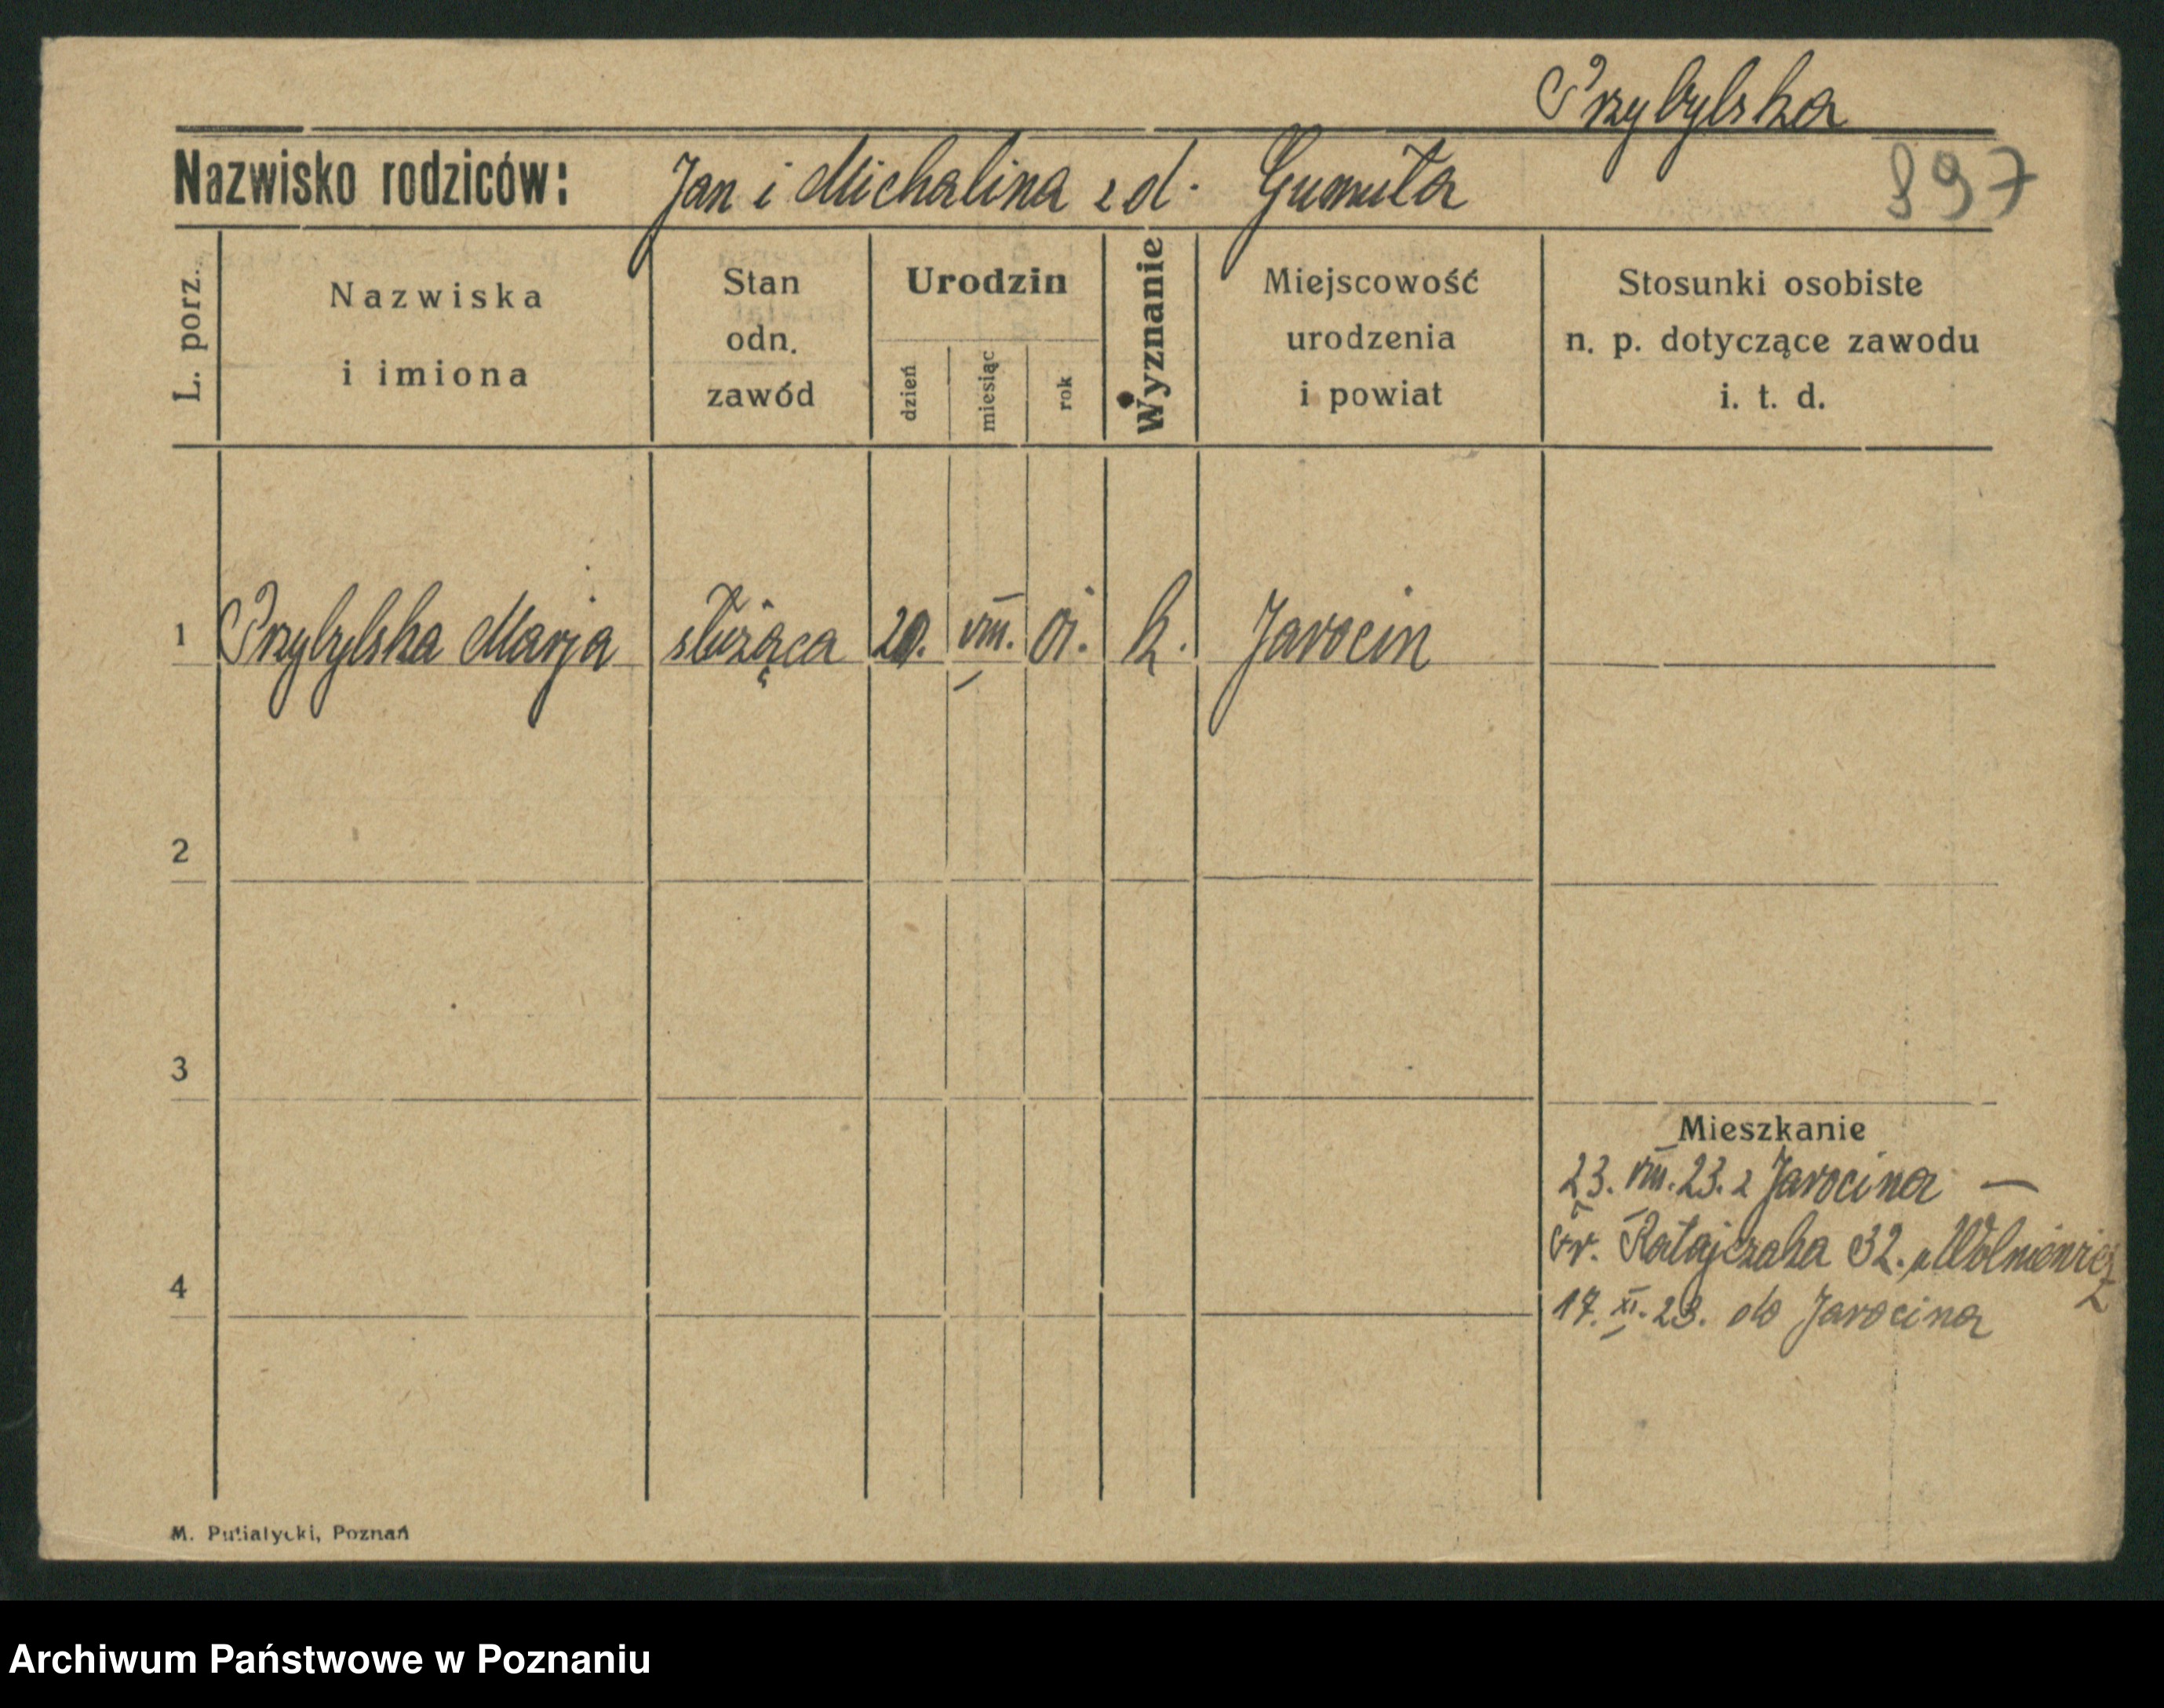 Przybylska
Nazwisko rodziców: Jan i Michalina z d. Gumuła
897
L. porz.
Nazwiska
i imiona
Stan
odn.
zawód
Urodzin
dzień
miesiąc
rok
Wyznanie
Miejscowość
urodzenia
i powiat
Stosunki osobiste
n. p. dotyczące zawodu
i. t. d.
1 Przybylska Marja służąca 20. VIII. 01. k. Jarocin
2
3
Mieszkanie
23. VIII. 23. z Jarocina —
Fr. Ratajczaka 32. u Wolniewicz
4
17. XI. 23. do Jarocina
M. Putiatycki, Poznań
Archiwum Państwowe w Poznaniu